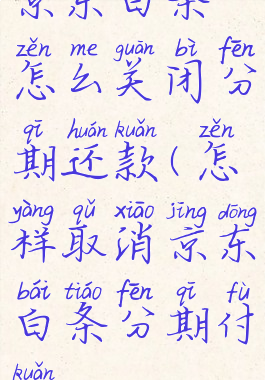 京东白条
zěn me guān bì fēn
怎么关闭分
qī huán kuǎn zěn
期还款(怎
yàng qǔ xiāo jīng dōng
样取消京东
bái tiáo fēn qī fù
白条分期付
kuǎn